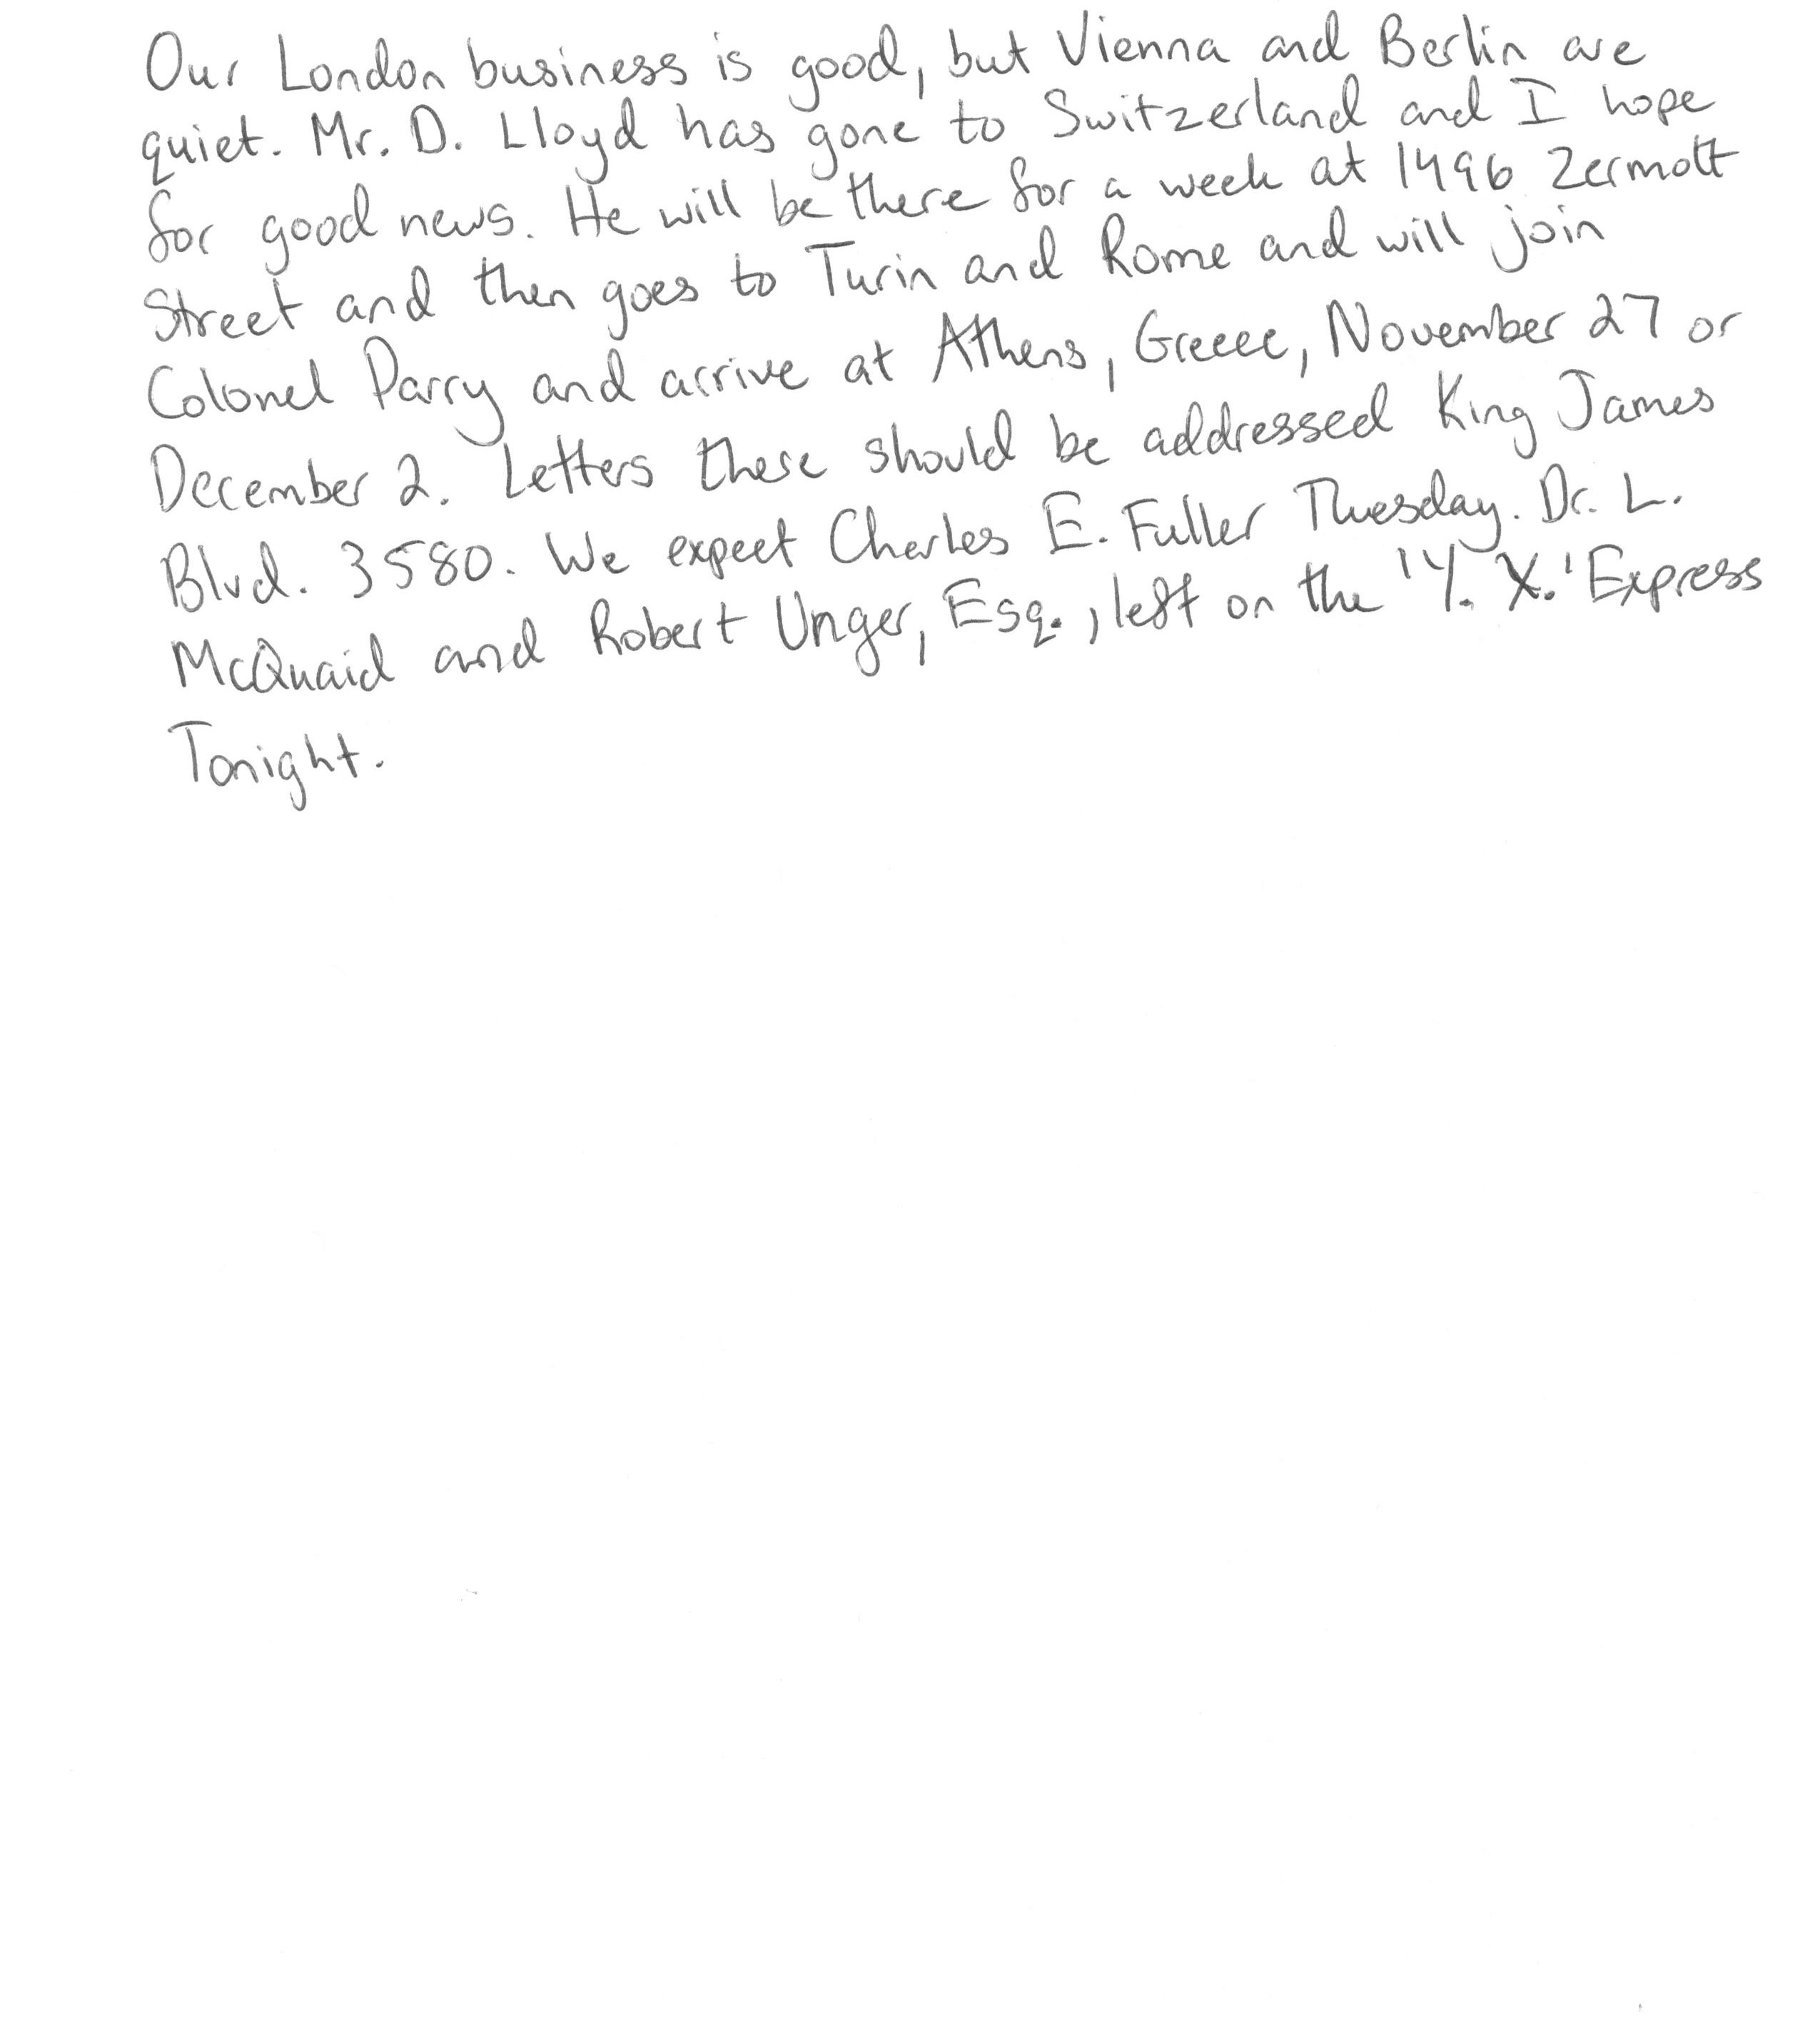 Our London business is good, but Vienna and Berlin are
quiet. Mr. D. Lloyd has gone to Switzerland and I hope
for good news. He will be there for a week at 1496 Zermott
Street and then goes to Turin and Rome and will join
Colonel Parry and arrive at Athens, Greece, November 27 or
December 2. Letters these should be addressed King James
Blvd. 3580. We expect Charles E. Fuller Tuesday. Dr. L.
McQuaid and Robert Unger, Esq., left on the 'Y. X.' Express
Tonight.